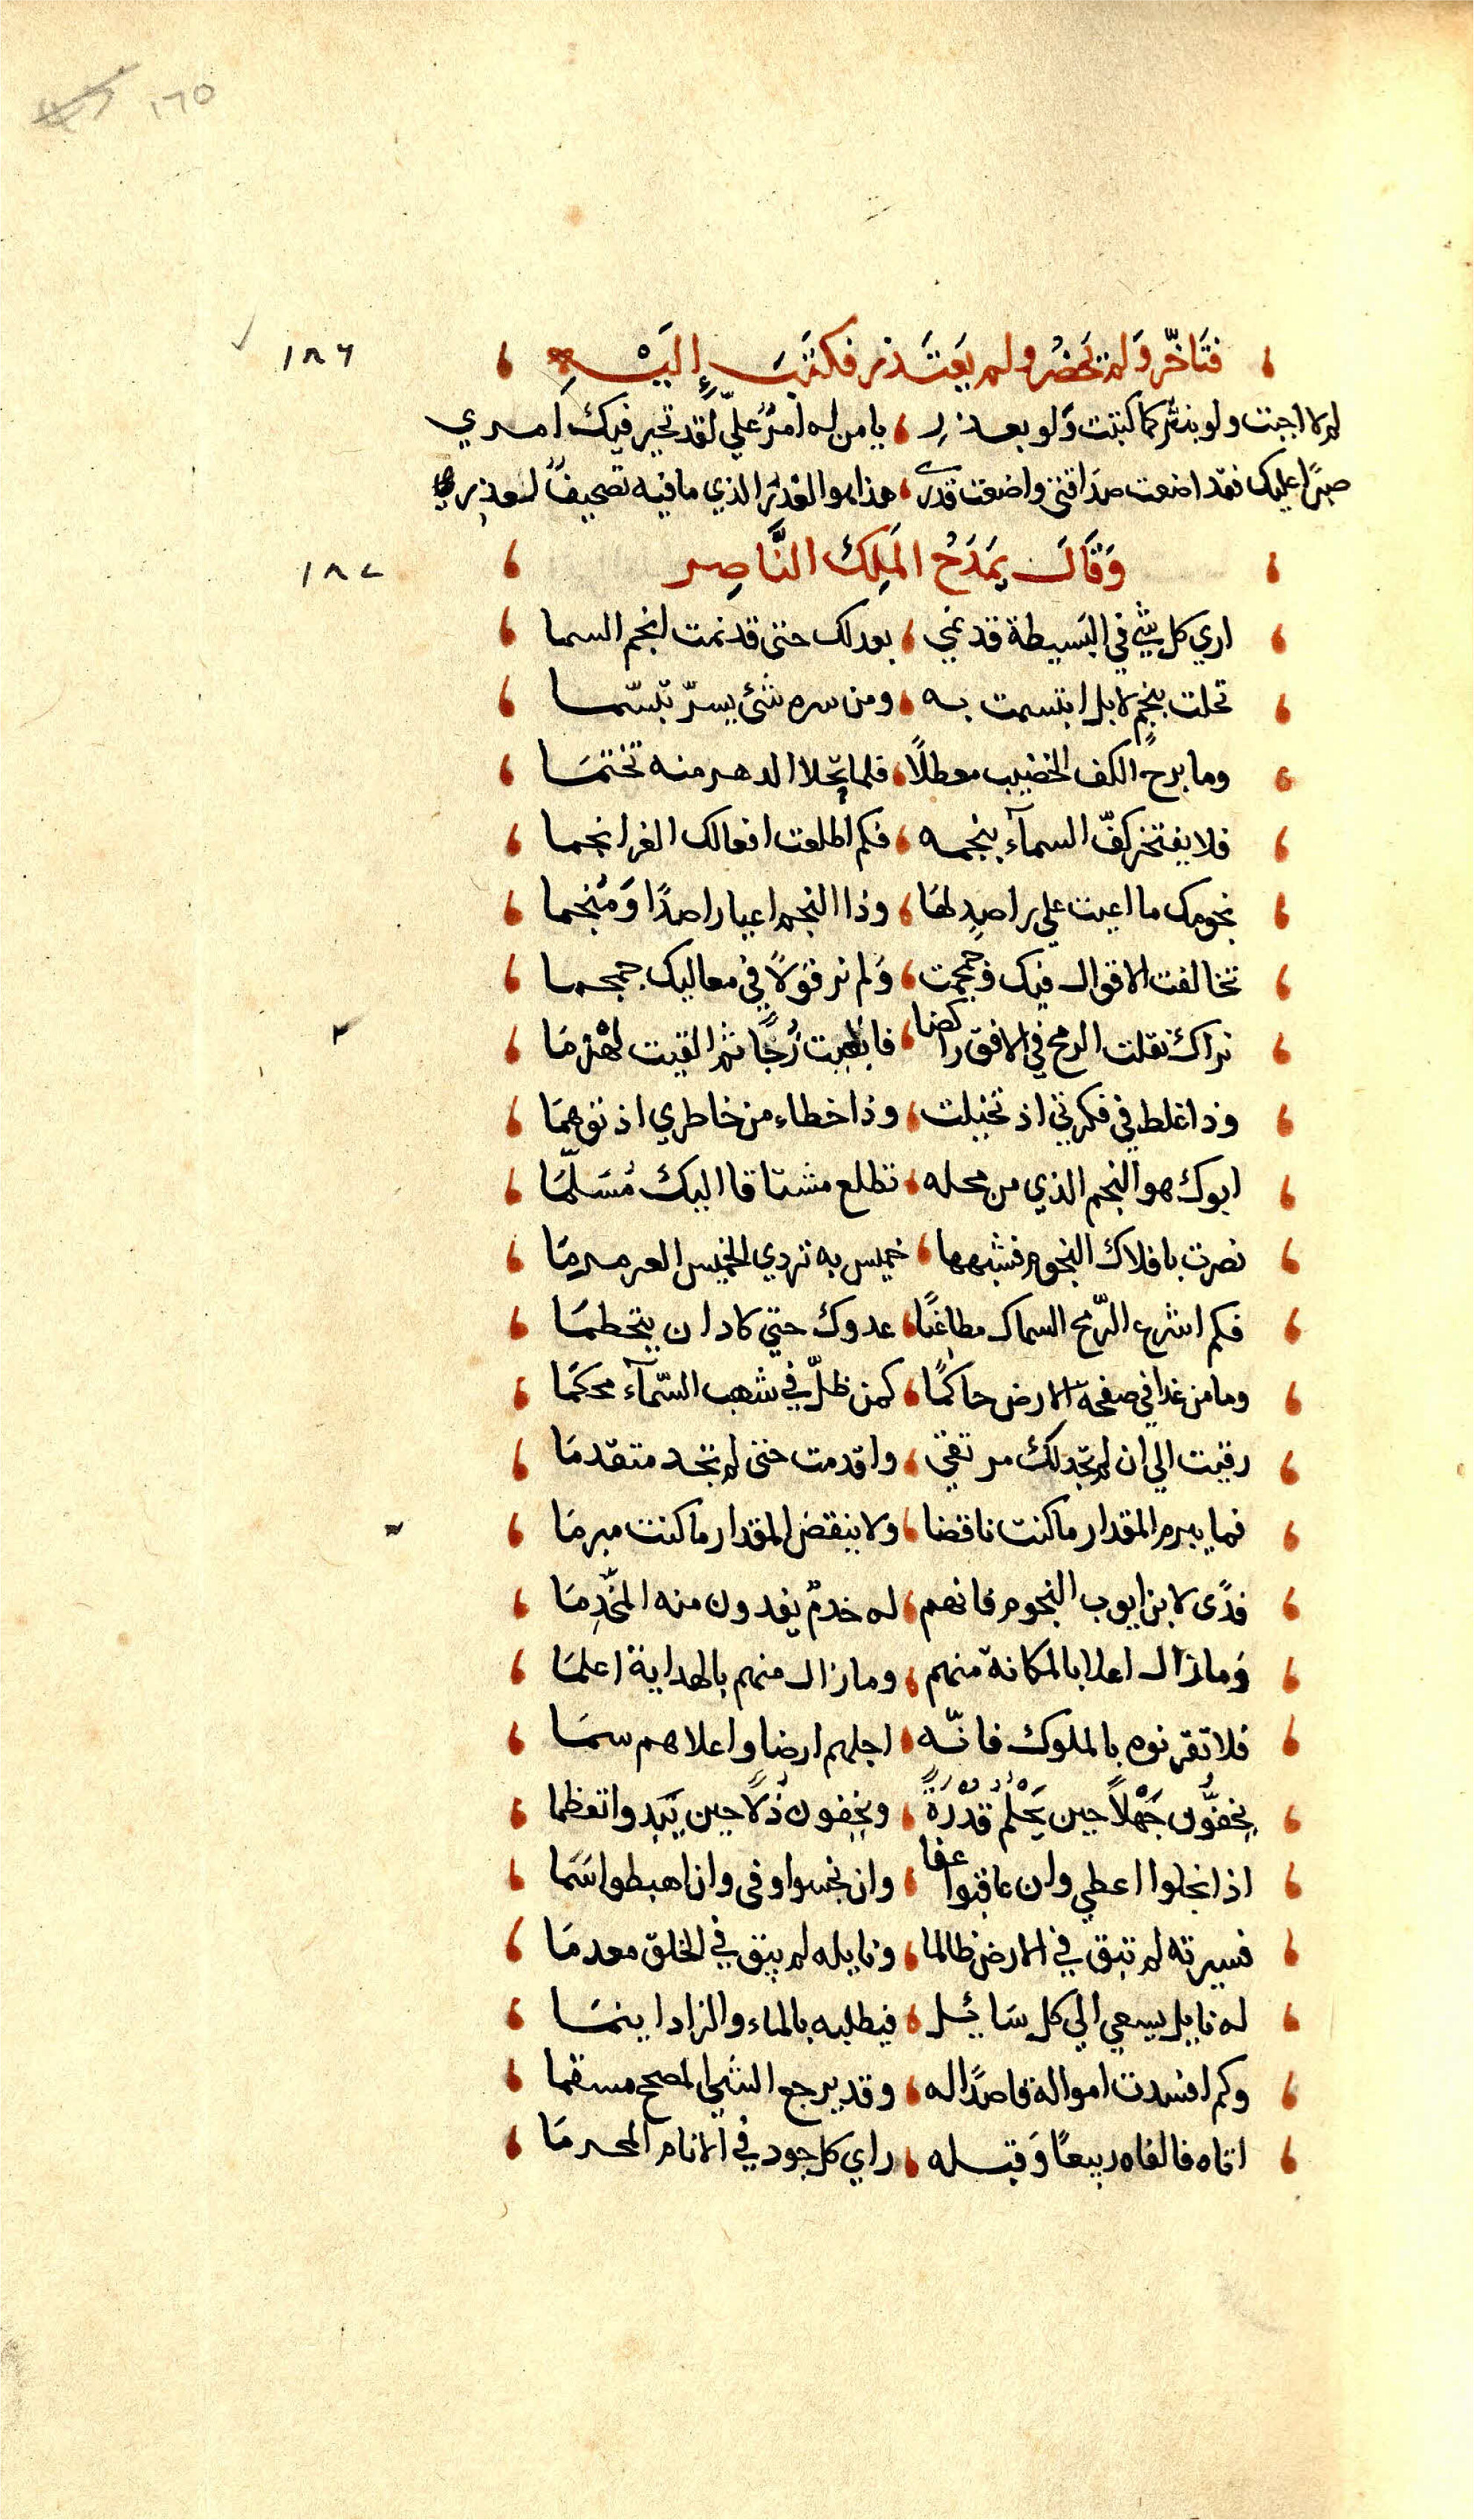 ١٦٥
فتَاخّر وَلم يَحضُر ولم يَعتَذر فكتَبَ إليَــهِ ١٨٦
لم لا اجبت ولو بنثر كما كتبت وَلو بعذر يا من له امرٌ عليّ لقد تحير فيك امري
صبرًا عليك فقد اضعت صداقتي واضعت قدري هذا هو الغدر الذي ما فيه تصحيف لعذر
وَقَالَ يَمدَحُ المَلِكَ النَّاصِر ١٨٧
اري كل شيٍ في البَسيطة قد نمي بعدلك حتى قد نمت انجم السما
تحلت بنجمٍ لا بل ابتسمت به ومن سره شئ يسرّ تبسّما
وما برحَ الكف الخضيب معطلاً فلما تحلا الدهر منه تختمَا
فلا يفتخر كفّ السمآءِ بنجمه فكم اطلعت افعالك الغر انجما
نجومك ما اعيت علي راصدٍ لهَا وذا النجم اعيا راصدًا وَمُنجما
تخالفت الاقوال فيك فجمجمت وَلم نر قوَلاً في معاليك جمجما
نراك نقلت الرمح في الافق راكضا زُجًّا ثم القيت لهْذمَا
وذا غلط في فكرتي اذ تخيلت وذا خطاء من خاطري اذ توهمَا
ابوك هو النجم الذي من محله تطلع مشتاقا اليك مُسَلّمَا
نصرت بافلاك النجوم فشبهها خميس به تردي الخميس العرمرمَا
فكم اشرع الرّمح السماك مطاعنًا عدوك حتي كاد ان يتحطمَا
وما من غدا في صفحة الارض حاكمًا كمن ظلّ في شهب السّمآءِ محكمَا
رقيت الي ان لم تجد لك مرتقي واقدمت حتى لم تجد متقدمَا
فما يبرم المقدار ما كنت ناقضا ولا ينقض المقدار ما كنت مبرمَا
فدًى لابن ايوب النجوم فانهم له خدمٌ يفدون منه المخّدمَا
وَمازال اعلا بالمكانة منهم ومازال منهم بالهداية اعلمَا
فلا تقرنوه بالملوك فانّه اجلهم ارضا واعلاهم سمَا
يخفوُّن جَهْلاً حين يَحْلُمُ قدْرَةً ويخفون ذُلاًّ حين يَبدوا تعظما
اذا بخلوا اعطي وان عاقبوا عفا وان بخسوا وفى وان اهبطوا سَمَا
فسيرته لم تبق في الارض ظالما ونايله لم يبق في الخلق معدمَا
له نايل يسعي الي كل سَائِـل فيطلبه بالماء والزاد اينمَا
وكم افسدت امواله قاصدًا له وقد يرجع الشي المصحح مسقما
اتاه فالفاه ربيعًا وَقبـله راي كل جود في الانام المحرمَا